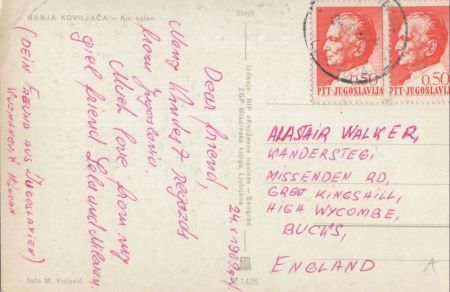 BANJA KOVILJAČA — Kur salon
254/8
Dear friend,
Many kindest regards
from Jugoslavia.
Much love from my
girl friend Lela and Milovan
24 X 1969
(DEIN FREUND AUS JUGOSLAWIEN)
foto M. Vujović
Izdanje: NIP »Književne novine« — Beograd
ZGP Mladinska knjiga, Ljubljana
1426
0.50
PTT-JUGOSLAVIJA
0.50
PTT-JUGOSLAVIJA
ALASTAIR WALKER,
KANDERSTEGI
MISSENDEN RD,
GREAT KINGSHILL,
HIGH WYCOMBE,
BUCKS,
ENGLAND
A